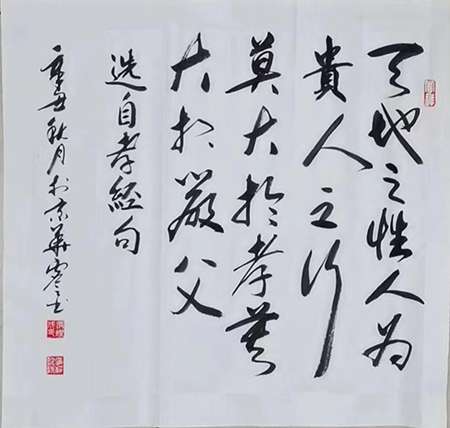 天地之性人为
貴人之行
莫大於孝莫
大於嚴父
选自孝经句
辛丑秋月於京華